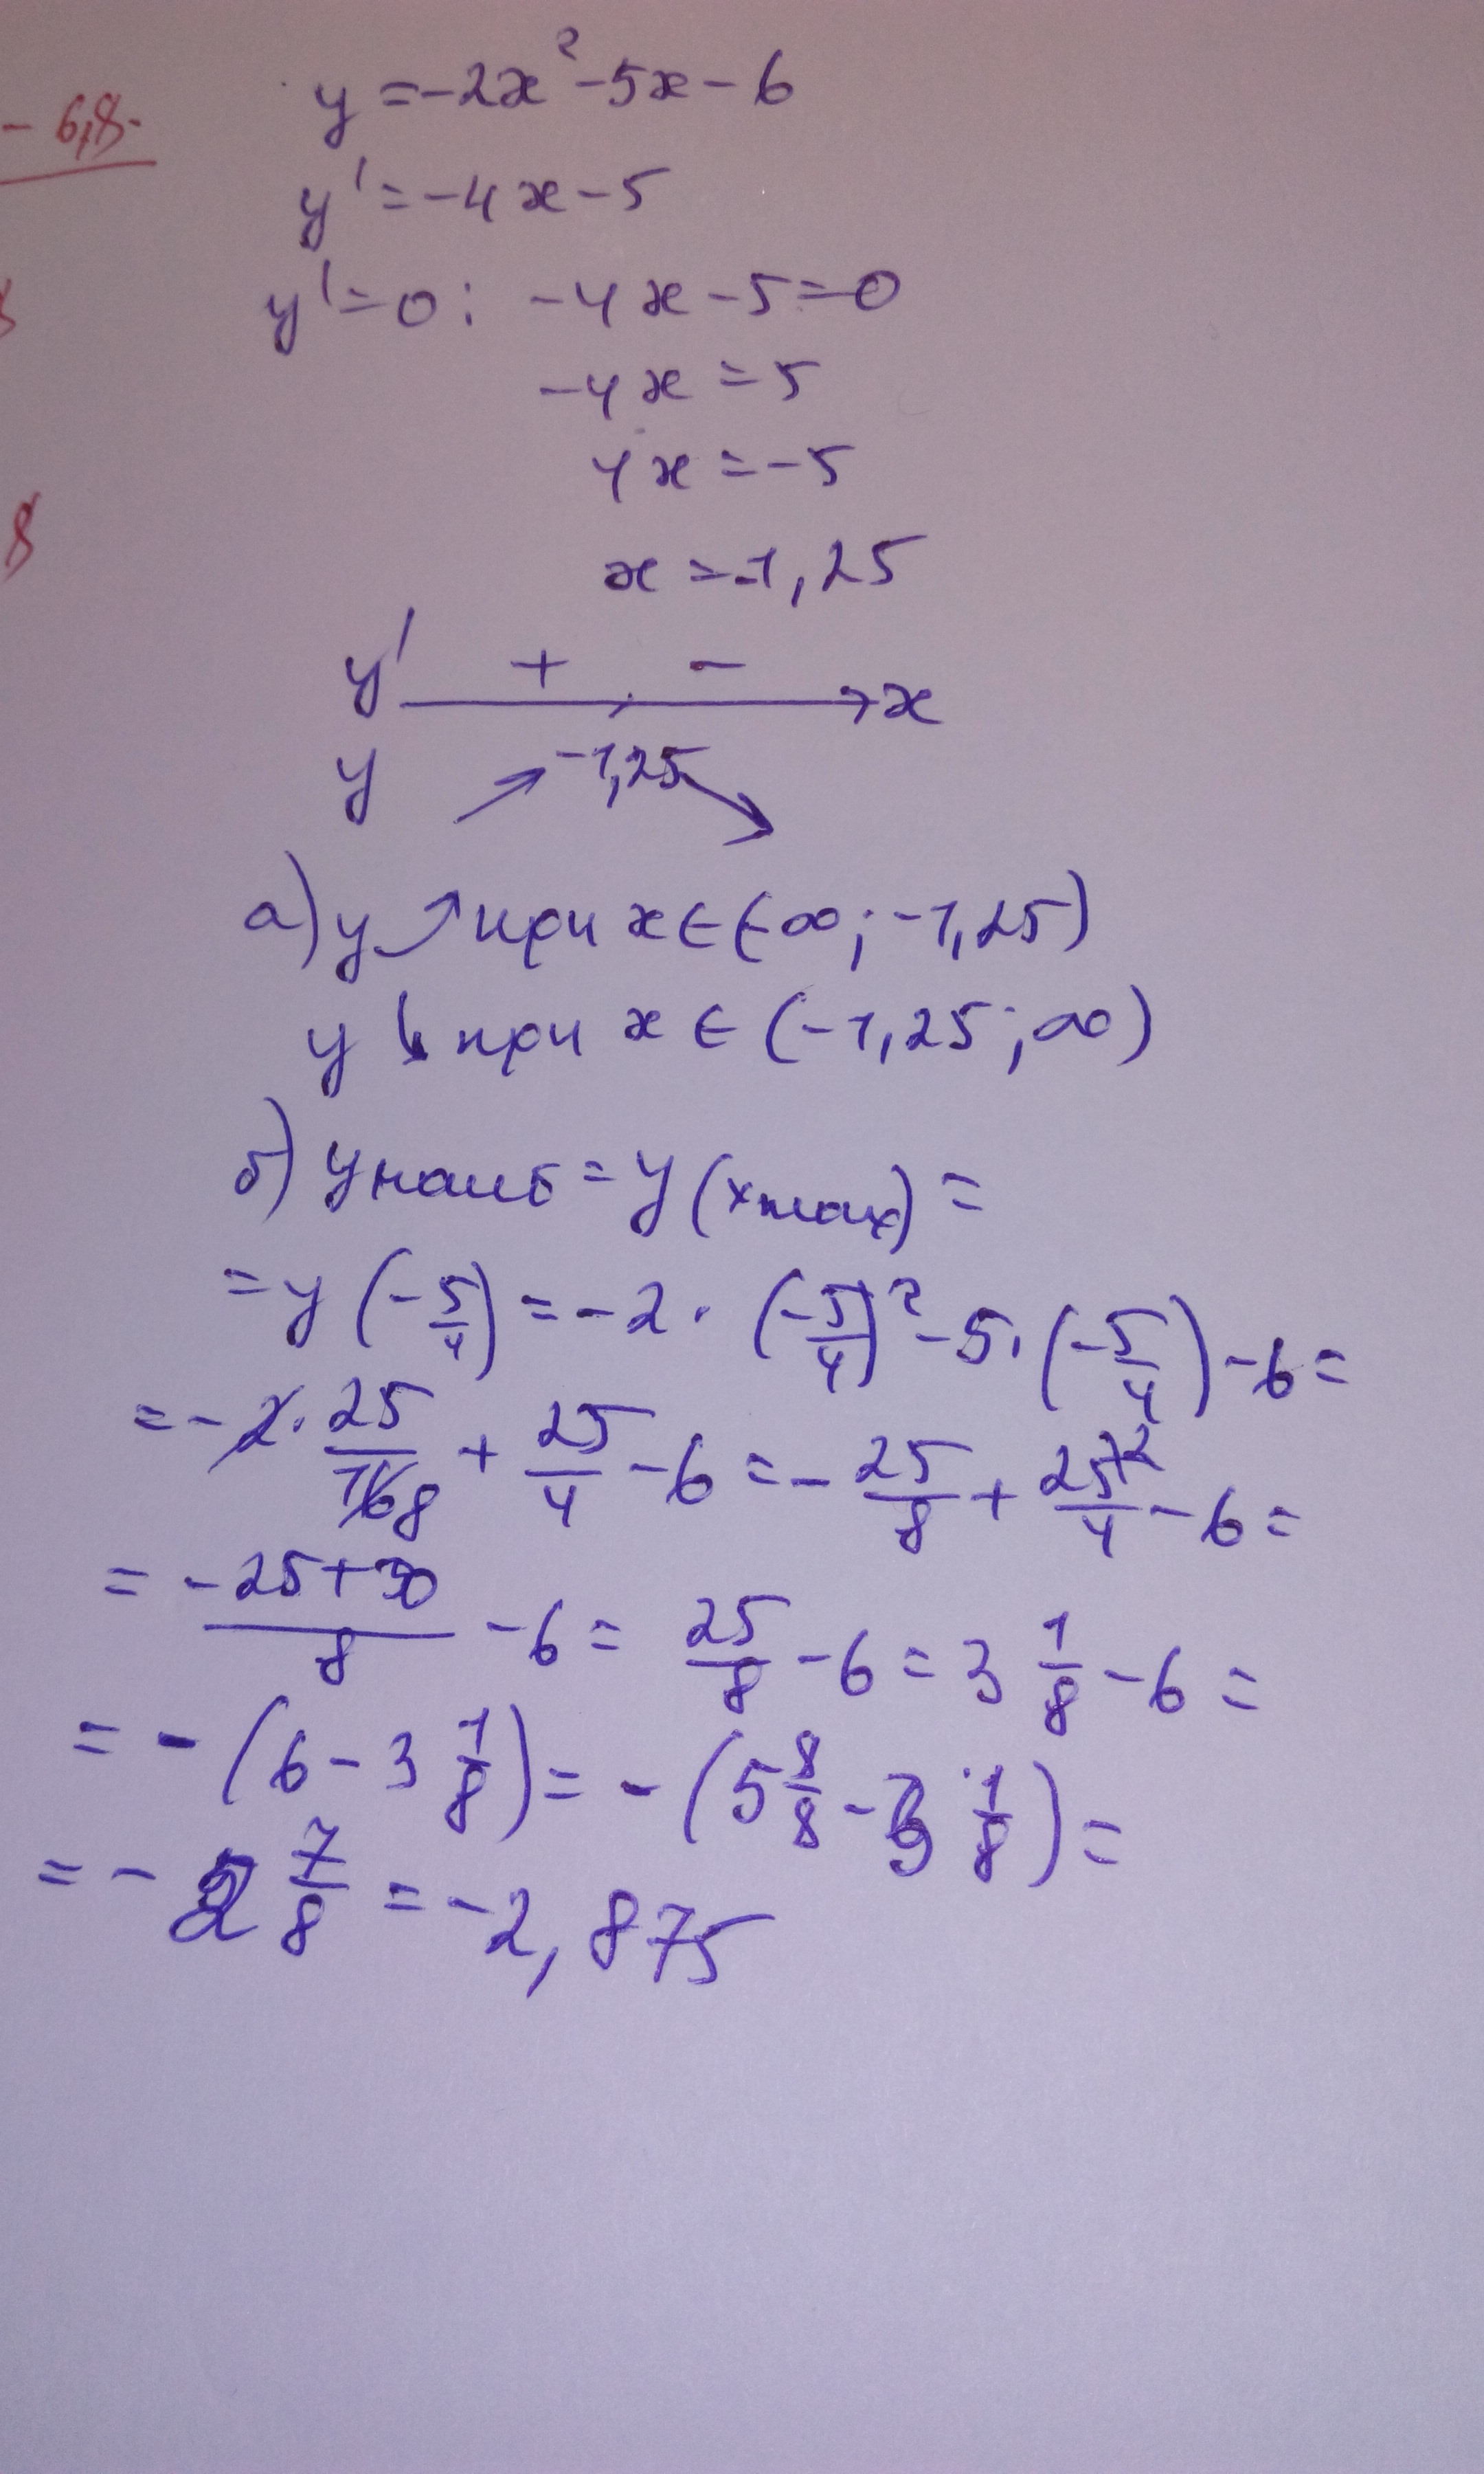 y = -2x² - 5x - 6
- 6,8 -
y' = -4x - 5
y' = 0 : -4x - 5 = 0
-4x = 5
4x = -5
8
x = -1,25
y' + - x
y -1,25
а) y ↗ при x ∈ (-∞; -1,25)
y ↘ при x ∈ (-1,25; ∞)
б) y наиб = y (x max) =
= y (-5/4) = -2 · (-5/4)² - 5 · (-5/4) - 6 =
= -2 · 25/16 8 + 25/4 - 6 = -25/8 + 25·2/4 - 6 =
= (-25 + 50)/8 - 6 = 25/8 - 6 = 3 1/8 - 6 =
= - (6 - 3 1/8) = - (5 8/8 - 3 1/8) =
= - 2 7/8 = -2,875